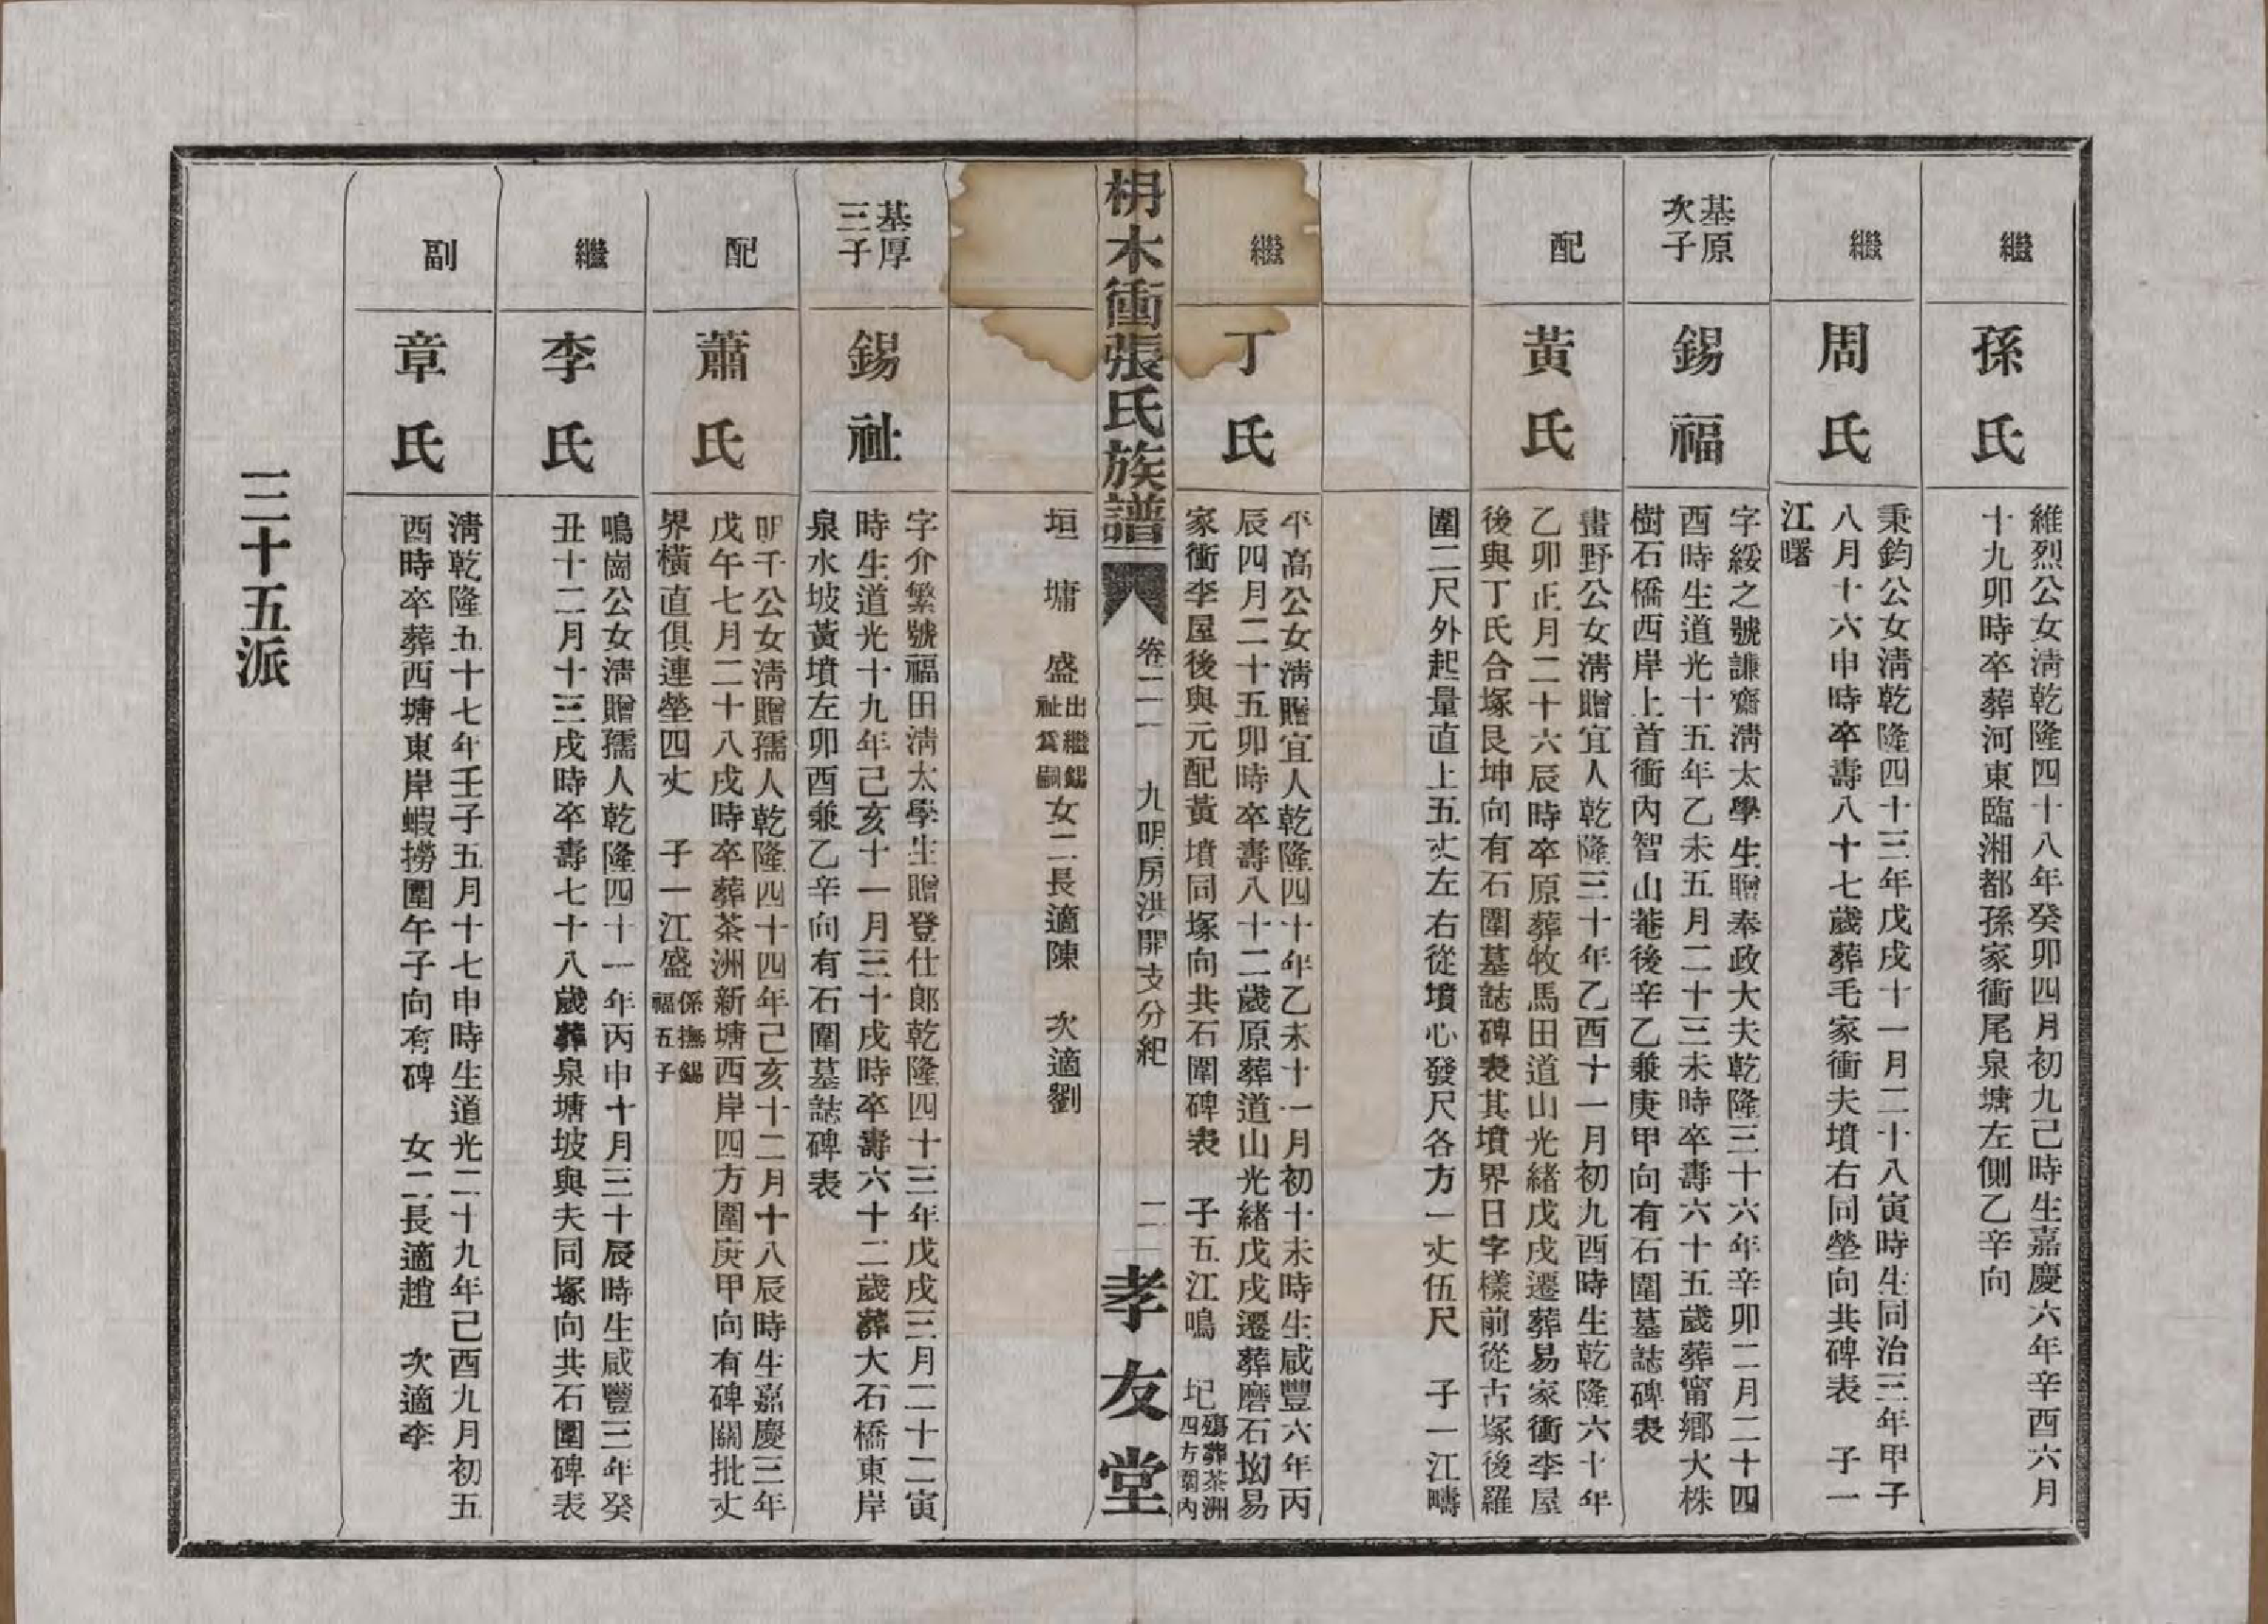 繼
孫氏
維烈公女淸乾隆四十八年癸卯四月初九己時生嘉慶六年辛酉六月
十九卯時卒葬河東臨湘都孫家衝尾泉塘左側乙辛向
繼
周氏
秉鈞公女淸乾隆四十三年戊戌十一月二十八寅時生同治三年甲子
八月十六申時卒壽八十七歲葬毛家衝夫墳右同塋向共碑表　子一
江曙
基原
次子
錫福
字綏之號謙齋淸太學生贈奉政大夫乾隆三十六年辛卯二月二十四
酉時生道光十五年乙未五月二十三未時卒壽六十五歲葬甯鄉大株
樹石橋西岸上首衝內智山菴後辛乙兼庚甲向有石圍墓誌碑表
配
黃氏
畫野公女淸贈宜人乾隆三十年乙酉十一月初九酉時生乾隆六十年
乙卯正月二十六辰時卒原葬牧馬田道山光緒戊戌遷葬易家衝李屋
後與丁氏合塚艮坤向有石圍墓誌碑表其墳界日字樣前從古塚後羅
圍二尺外起量直上五丈左右從墳心發尺各方一丈伍尺　子一江疇
繼
丁氏
平高公女淸贈宜人乾隆四十年乙未十一月初十未時生咸豐六年丙
辰四月二十五卯時卒壽八十二歲原葬道山光緒戊戌遷葬磨石坳易
家衝李屋後與元配黃墳同塚向共石圍碑表　子五江鳴　圮
殤葬茶洲
四方圍內
枬木衝張氏族譜　卷二　九明房洪開支分紀　二　孝友堂
垣　墉　盛
出繼錫
祉爲嗣
女二長適陳　次適劉
基厚
三子
錫祉
字介繁號福田淸太學生贈登仕郞乾隆四十三年戊戌三月二十二寅
時生道光十九年己亥十一月三十戌時卒壽六十二歲葬大石橋東岸
泉水坡黃墳左卯酉兼乙辛向有石圍墓誌碑表
配
蕭氏
明千公女淸贈孺人乾隆四十四年己亥十二月十八辰時生嘉慶三年
戊午七月二十八戌時卒葬茶洲新塘西岸四方圍庚甲向有碑關批丈
界橫直俱連塋四丈　子一江盛
係撫錫
福五子
繼
李氏
鳴崗公女淸贈孺人乾隆四十一年丙申十月三十辰時生咸豐三年癸
丑十二月十三戌時卒壽七十八歲葬泉塘坡與夫同塚向共石圍碑表
副
章氏
淸乾隆五十七年壬子五月十七申時生道光二十九年己酉九月初五
酉時卒葬西塘東岸蝦撈圍午子向有碑　女二長適趙　次適李
三十五派